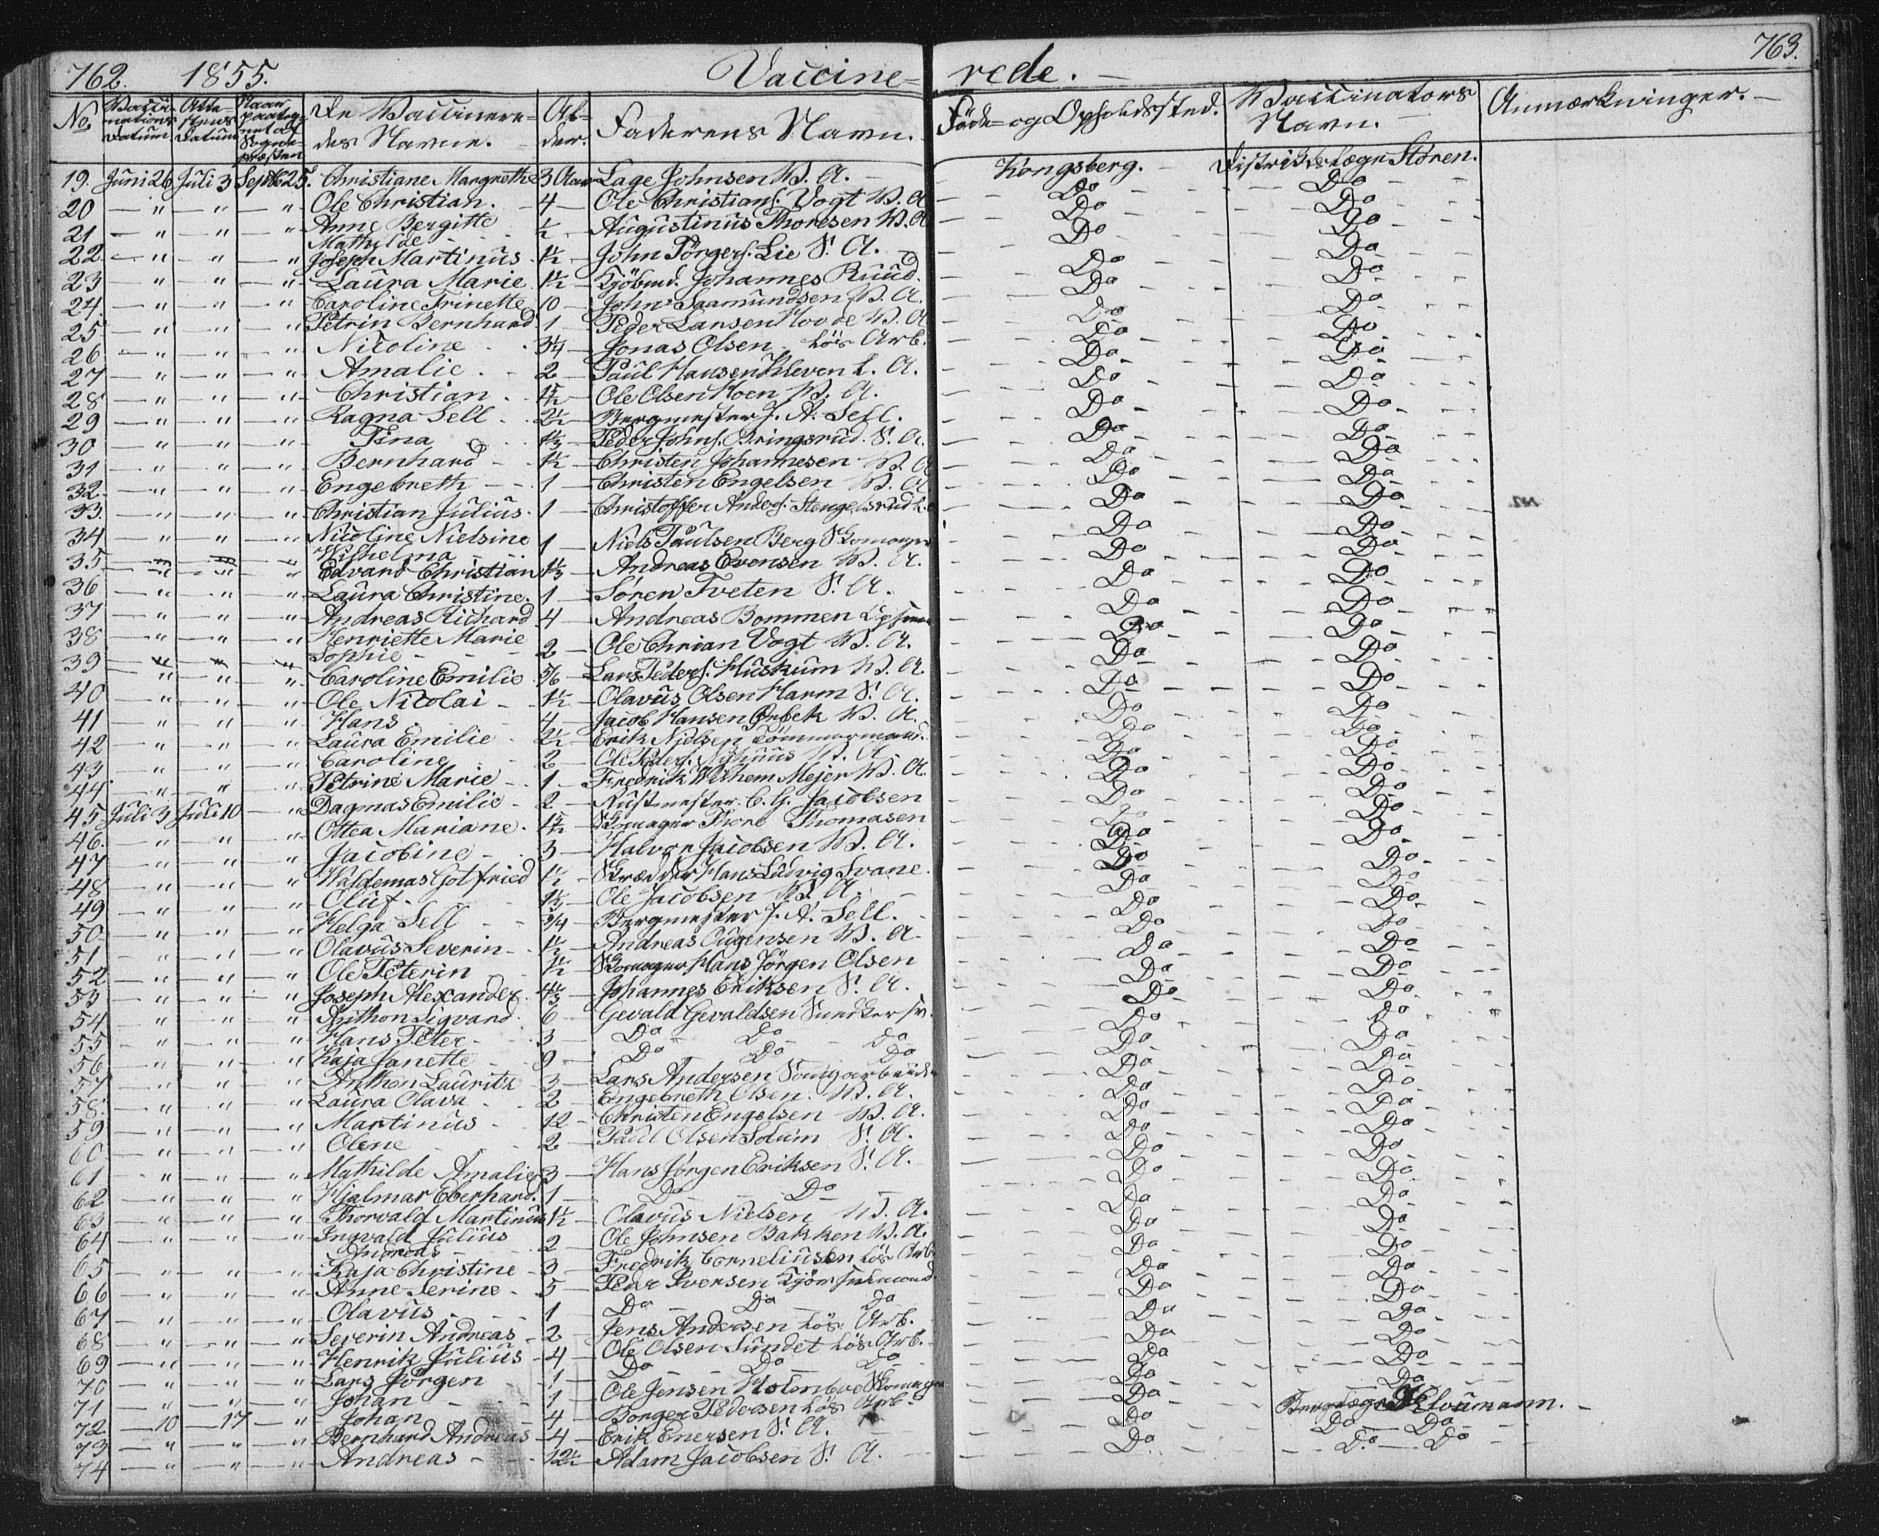 762. 1855. Vaccine= rede. 763.
No. Vacci-nations Datum Atte-stens Datum Naar paateg-net af Sogne-præsten De Vaccinere-des Navne. Al-der. Faderens Navn. Föde- og Opholdssted. Vaccinators Navn. Anmærkninger.
19. Juni 26 Juli 3 Sept 25. Christiane Margrethe 3 Aar Lage Johnsen W. A. Kongsberg. Distriktslæge Stören.
20 — " — " — " Ole Christian. 4 — Ole Christians. Vogt W. A Do Do
21 — " — " — " Anne Bergitte Mathilde ½ — Augustinus Thoresen W. A Do Do
22 — " — " — " Joseph Martinus 1½ — John Jörgens. Lie S. A. Do Do
23 — " — " — " Laura Marie 1½ — Kjöbmd. Johannes Ruud. Do Do
24. — " — " — " Caroline Trinette 10 — John Saamundsen W. A. Do Do
25 — " — " — " Petrin Bernhard 1 — Peder Larsen Hovde W. A Do Do
26 — " — " — " Nicoline 3¼ — Jonas Olsen Lös Arb. Do Do
27 — " — " — " Amalie 2 — Paul Hansen Kleven L. A. Do Do
28 — " — " — " Christian — Ole Olsen Moen W. A. Do Do
29 — " — " — " Ragna Sell 2½ — Bergmester J. A. Sell. Do Do
30 — " — " — " Tina 1⅓ — Peder Johns. Bringsrud. S. A. Do Do
31 — " — " — " Bernhard 1½ — Christen Johannesen W. A Do Do
32 — " — " — " Engebreth 1 — Christen Engelsen W. A. Do Do
33 — " — " — " Christian Julius 1 — Christoffer Anders. Stengelsrud L. A Do Do
34 — " — " — " Nicoline Nielsine Wilhelma 1 — Niels Paulsen Berg Skomager Do Do
35 — " — " — " Edvard Christian 1⅓ — Andreas Evensen W. A. Do Do
36 — " — " — " Laura Christine. 1 — Sören Tveten S. A. Do Do
37 — " — " — " Andreas Richard 4 — Andreas Bommen Do Do
38 — " — " — " Henriette Marie Sophie 2 — Ole Chrian Vogt W. A. Do Do
39 — " — " — " Caroline Emilie 5/6 — Lars Peders. Huskum W. A Do Do
40 — " — " — " Ole Nicolai 1½ — Olavus Olsen Harm S. A. Do Do
41 — " — " — " Hans 4 — Jacob Hansen Ørbek W. A. Do Do
42 — " — " — " Laura Emilie 2½ — Erik Nielsen Tömmermand. Do Do
43. — " — " — " Caroline 2 — Ole Peders. Nyhuus W. A. Do Do
44. — " — " — " Petrine Marie 1 — Fredrik Wilhem Mejer W. A. Do Do
45 Juli 3 Juli 10 — " Dagmas Emilie 2 — Rustmester C. G. Jacobsen Do Do
46. — " — " — " Ottea Mariane — Skomager Thore Thomasen Do Do
47 — " — " — " Jacobine 3 — Halvor Jacobsen W. A. Do Do
48 — " — " — " Waldemas Gotfried 1½ — Skrædder Hans Ludvig Svane. Do Do
49 — " — " — " Oluf 1⅓ — Ole Jacobsen W. A. Do Do
50 — " — " — " Helga Sell ¾ — Bergmester J. A. Sell. Do Do
51 — " — " — " Olavus Severin 1½ — Andreas Eugensen W. A. Do Do
52 — " — " — " Ole Peterin 1½ — Skomager Hans Jörgen Olsen Do Do
53 — " — " — " Joseph Alexander 4⅓ — Johannes Eriksen S. A. Do Do
54 — " — " — " Anthon Sigvard 6 — Gevald Gevaldsen Snedker sv. Do Do
55 — " — " — " Hans Peter 3 — Do Do Do Do Do
56 — " — " — " Kaja Janette 9 — Do Do Do Do Do
57 — " — " — " Anthon Lauritz 3 — Lars Andersen Do Do
58. — " — " — " Laura Olava 2 — Engebreth Olsen. W. A. Do Do
59 — " — " — " Martinus 12 — Christen Engelsen W. A. Do Do
60 — " — " — " Olene 2 — Paul Olsen Solum S. A. Do Do
61 — " — " — " Mathilde Amalie 3 — Hans Jörgen Eriksen S. A. Do Do
62 — " — " — " Hjalmar Eberhard. 1 — Do Do Do Do
63 — " — " — " Thorvald Martinius 1½ — Olavus Nielsen W. A. Do Do
64 — " — " — " Ingvald Julius Andreas 2 — Ole Johnsen Bakken W. A. Do Do
65 — " — " — " Kaja Christine 3 — Fredrik Corneliusen Lös Arb Do Do
66 — " — " — " Anne Serine 5 — Peder Iversen Do Do
67 — " — " — " Olavus 1 — Do Do Do Do Do
68 — " — " — " Severin Andreas 2 — Jens Andersen Lös Arb. Do Do
69 — " — " — " Henrik Julius 4 — Ole Olsen Sundet Lös. Arb. Do Do
70 — " — " — " Lars Jörgen 1 — Do Do Do Do Do
71 — " — " — " Johan 1 — Ole Jensen Holmboe Skomager Do
72 — 10 — 17 — " Johan 4 — Borger Pedersen Lös Arb Do Berglæge Heltzmann.
73 — " — " — " Bernhard Andreas 4 — Erik Enersen S. A. Do Do Do
74 — " — " — " Andreas 12½ — Adam Jacobsen S. A. Do Do Do